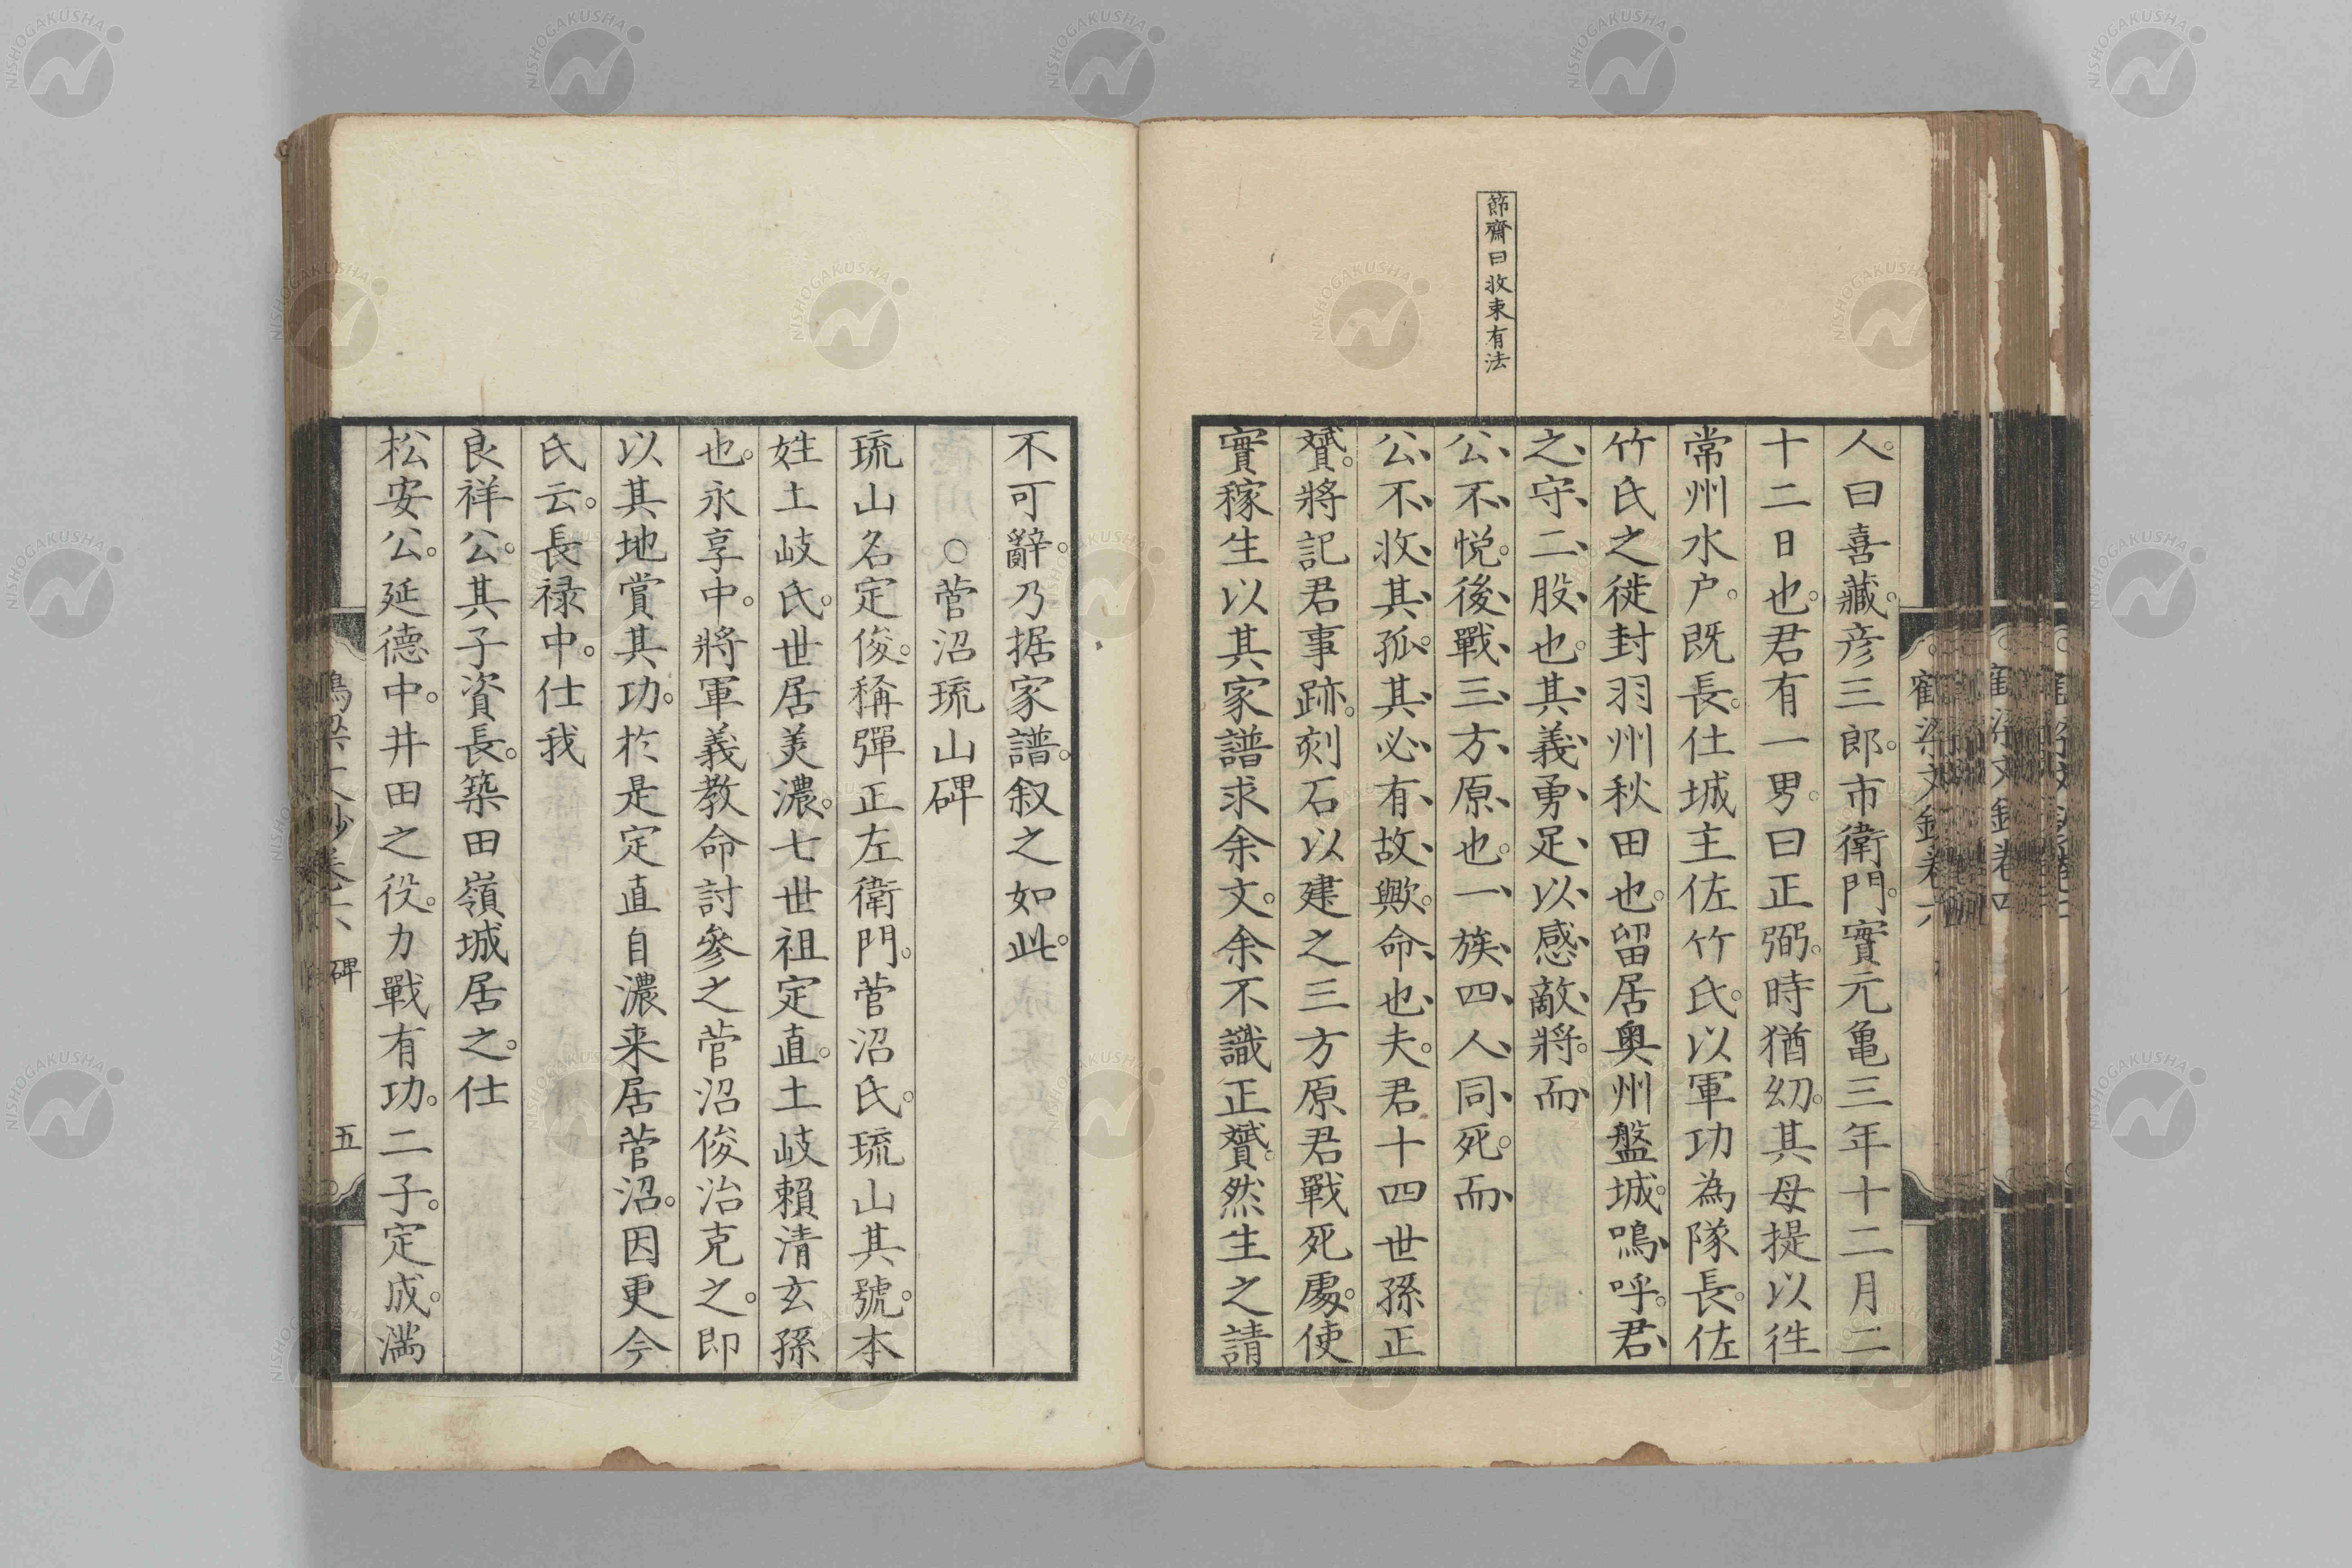 節齋曰收束有法
人。曰喜藏。彦三郎。市衛門。實元亀三年十二月二
十二日也。君有一男。曰正弼。時猶幼。其母提以徃
常州水户。既長。仕城主佐竹氏。以軍功為隊長。佐
竹氏之徙封羽州秋田也。留居奥州盤城。嗚呼。君
之守二股也。其義勇足以感敵將。而
公不悦。後戰三方原也。一族四人同死。而
公不收其孤。其必有故歟。命也夫。君十四世孫正
贇。將記君事跡。刻石以建之三方原君戰死處。使
實稼生以其家譜求余文。余不識正贇。然生之請
不可辭。乃据家譜。叙之如此。
○菅沼琉山碑
琉山名定俊。稱彈正左衛門。菅沼氏。琉山其號。本
姓土岐氏。世居美濃。七世祖定直。土岐賴清玄孫
也。永享中。將軍義教命討參之菅沼俊治克之。即
以其地賞其功。於是定直自濃来居菅沼。因更今
氏云。長禄中。仕我
良祥公。其子資長。築田嶺城居之。仕
松安公。延德中。井田之役。力戰有功。二子。定成。満
鶴梁文鈔卷六 碑 五